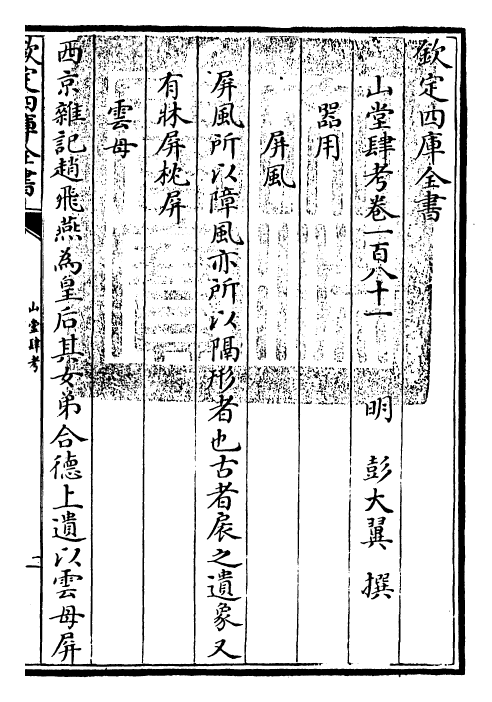 欽定四庫全書
山堂肆考卷一百八十一　明　彭大翼　撰
器用
屏風
屏風所以障風亦所以隔形者也古者扆之遺象又
有牀屏枕屏
雲母
西京雜記趙飛燕為皇后其女弟合德上遺以雲母屏
欽定四庫全書
山堂肆考